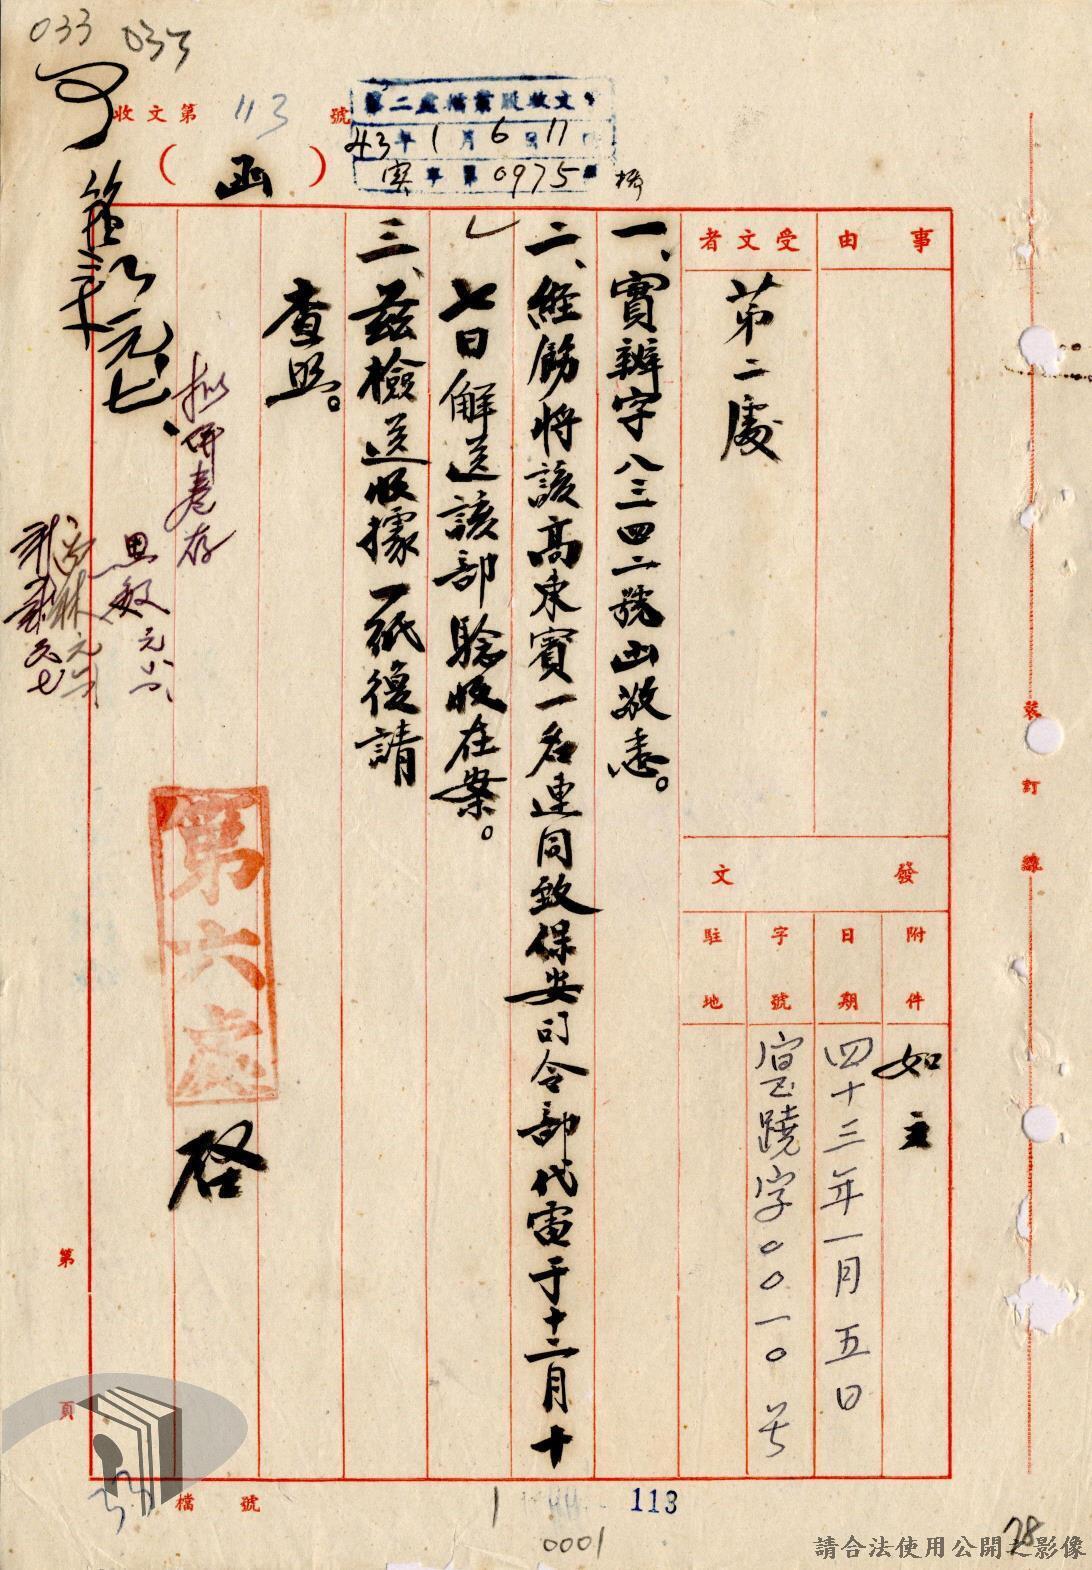 033 033
收文第113號
第二處檔案股收文
43年1月6日11時
実字第0975號
（函）
事由
受文者
第二處
發文
附件
如主
日期
四十三年一月五日
字號
字〇〇一〇号
駐地
一、實辦字八三四二號函敬悉。
二、經飭將該高東賓一名連同致保安司令部代電于十二月十
七日解送該部驗收在案。
三、茲檢送收據一紙復請
查照。
第六處
啓
元、七、
擬併卷存
思敏
裝訂線
第
頁
檔號
1
113
0001
78
請合法使用公開之影像